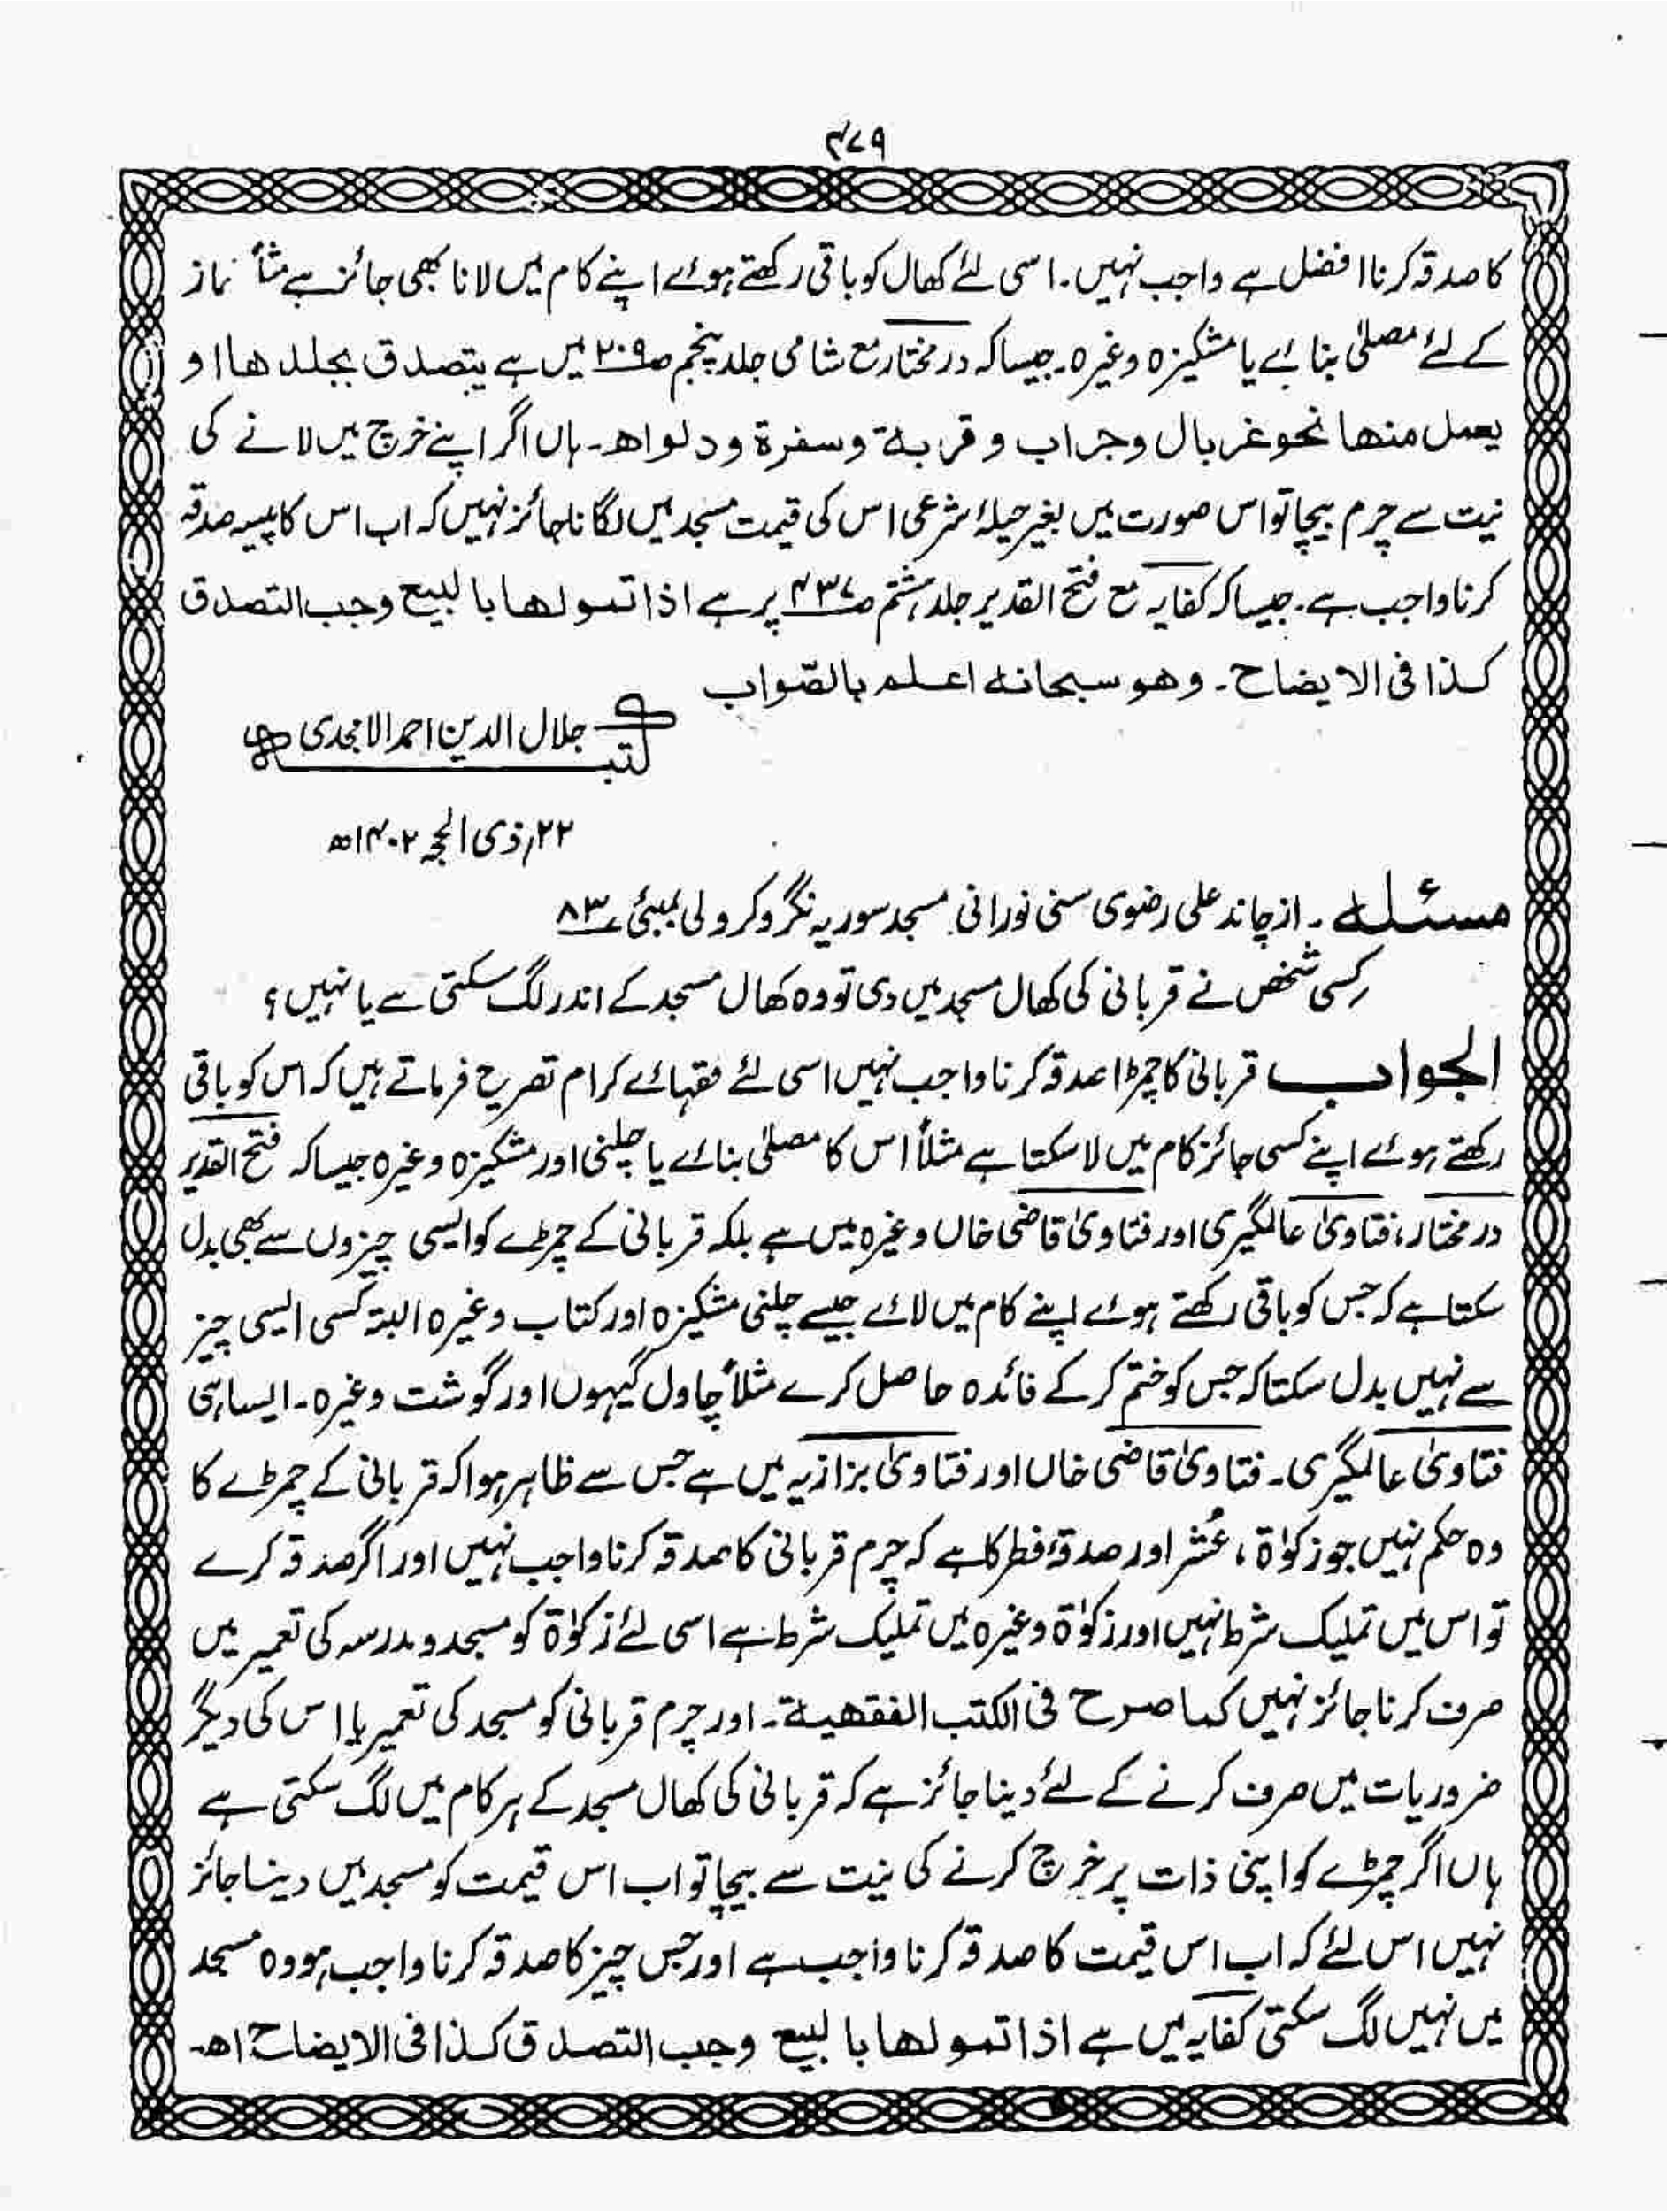 ۴۷۹
کا صدقہ کرنا افضل ہے واجب نہیں۔ اسی لئے کھال کو باقی رکھتے ہوئے اپنے کام میں لانا بھی جائز ہے مثلاً نماز
کے لئے مصلیٰ بنائے یا مشکیزہ وغیرہ۔ جیسا کہ درمختار مع شامی جلد پنجم ص۲۰۹ میں ہے یتصدق بجلدھا او
یعمل منھا نحو غربال وجراب و قربۃ و سفرۃ و دلو اھ۔ ہاں اگر اپنے خرچ میں لانے کی
نیت سے چرم بیچا تو اس صورت میں بغیر حیلۂ شرعی اس کی قیمت مسجد میں لگانا جائز نہیں کہ اب اس کا پیسہ صدقہ
کرنا واجب ہے۔ جیسا کہ کفایہ مع فتح القدیر جلد ہشتم ص۴۳۷ پر ہے اذا تمولھا بالبیع وجب التصدق
کذا فی الایضاح۔ وھو سبحانہ اعلم بالصّواب
کتبہ جلال الدین احمد الامجدی
۲۲؍ ذی الحجہ ۱۴۰۲ھ
مسئلہ۔ از چاند علی رضوی سنی نورانی مسجد سوریہ نگر وکرولی بمبئی ۸۳
کسی شخص نے قربانی کی کھال مسجد میں دی تو وہ کھال مسجد کے اندر لگ سکتی سے یا نہیں؟
الجواب قربانی کا چمڑا صدقہ کرنا واجب نہیں اسی لئے فقہائے کرام تصریح فرماتے ہیں کہ اس کو باقی
رکھتے ہوئے اپنے کسی جائز کام میں لا سکتا ہے مثلاً اس کا مصلیٰ بنائے یا چلنی اور مشکیزہ وغیرہ جیسا کہ فتح القدیر
درمختار، فتاویٰ عالمگیری اور فتاویٰ قاضی خاں وغیرہ میں ہے بلکہ قربانی کے چمڑے کو ایسی چیزوں سے بھی بدل
سکتا ہے کہ جس کو باقی رکھتے ہوئے اپنے کام میں لائے جیسے چلنی مشکیزہ اور کتاب وغیرہ البتہ کسی ایسی چیز
سے نہیں بدل سکتا کہ جس کو ختم کر کے فائدہ حاصل کرے مثلاً چاول گیہوں اور گوشت وغیرہ۔ ایسا ہی
فتاویٰ عالمگیری۔ فتاویٰ قاضی خاں اور فتاویٰ بزازیہ میں ہے جس سے ظاہر ہوا کہ قربانی کے چمڑے کا
وہ حکم نہیں جو زکوٰۃ، عُشر اور صدقۂ فطر کا ہے کہ چرم قربانی کا صدقہ کرنا واجب نہیں اور اگر صدقہ کرے
تو اس میں تملیک شرط نہیں اور زکوٰۃ وغیرہ میں تملیک شرط ہے اسی لئے زکوٰۃ کو مسجد و مدرسہ کی تعمیر میں
صرف کرنا جائز نہیں کما صرح فی الکتب الفقھیۃ۔ اور چرم قربانی کو مسجد کی تعمیر یا اس کی دیگر
ضروریات میں صرف کرنے کے لئے دینا جائز ہے کہ قربانی کی کھال مسجد کے ہر کام میں لگ سکتی ہے
ہاں اگر چمڑے کو اپنی ذات پر خرچ کرنے کی نیت سے بیچا تو اب اس قیمت کو مسجد میں دینا جائز
نہیں اس لئے کہ اب اس قیمت کا صدقہ کرنا واجب ہے اور جس چیز کا صدقہ کرنا واجب ہو وہ مسجد
میں نہیں لگ سکتی کفایہ میں ہے اذا تمولھا بالبیع وجب التصدق کذا فی الایضاح اھ۔